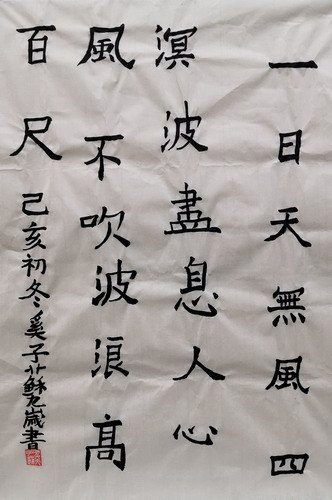 一日天無風四
溟波盡息人心
風不吹波浪高
百尺
己亥初冬奚子蘇九歲書